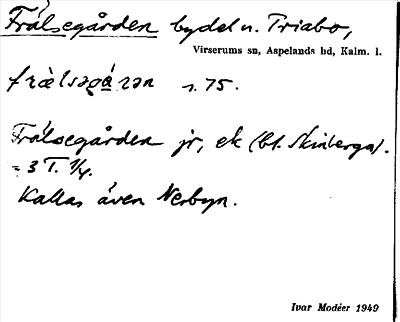 Frälsegården bydel u. Triabo,
Virserums sn, Aspelands hd, Kalm. l.
frälsəgá̱rən s. 75.
Frälsegården jr, ek (bl. Skinberga).
= 3 T. 1/4.
Kallas även Nerbyn.
Ivar Modéer 1949